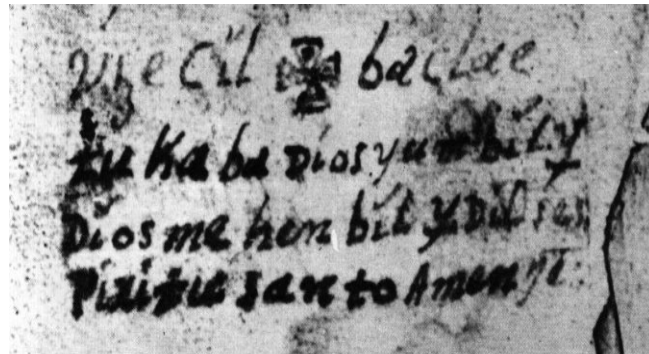 vize cil ✠ baclae
tu Ka ba Dios yum bil y
Dios me hen bil y Dios es
Piritu santo Amen